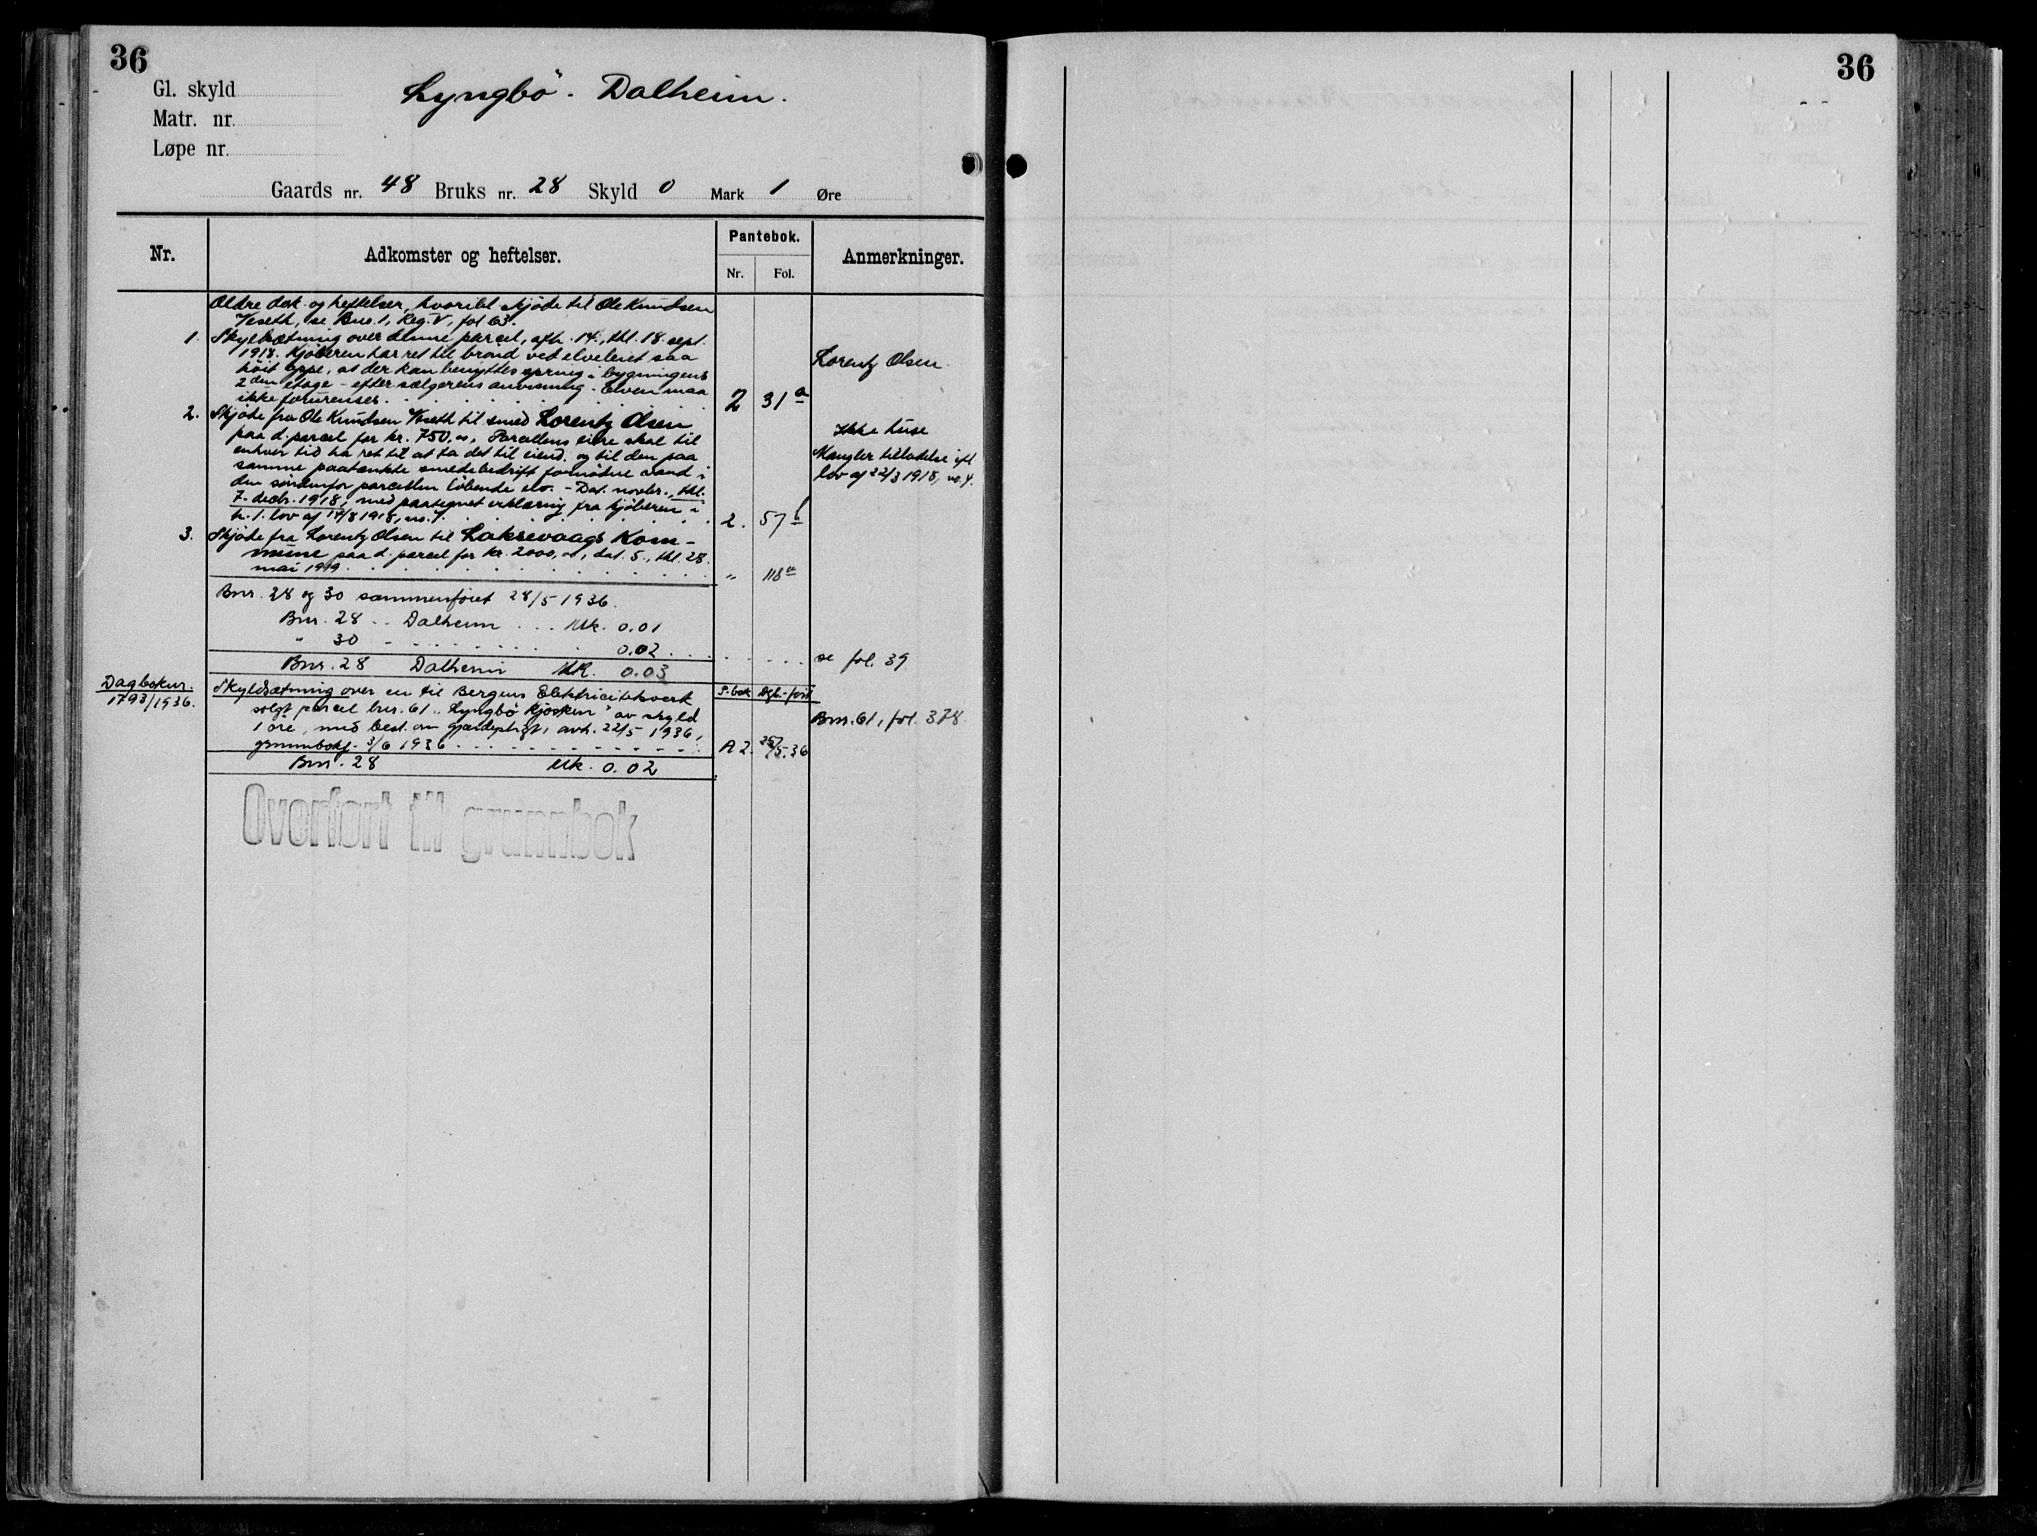 36
Gl. skyld
Matr. nr.
Løpe nr.
Lyngbö. Dalheim.
Gaards nr. 48 Bruks nr. 28 Skyld 0 Mark 1 Øre
Nr.
Adkomster og heftelser.
Pantebok.
Nr.
Fol.
Anmerkninger.
Ældre dok. og heftelser, hvoriblt skjöde til Ole Knudsen
Veseth, se Bno. 1, Reg. V, fol 63.
1. Skyldsætning over denne parcel, afh. 14., thl. 18 sept.
1918. Kjöberen har ret til brönd ved elveleiet saa
höit oppe, at der kan benyttes spring i bygningens
2den etage - efter sælgerens anvisning. Elven maa
ikke forurenses. 2 31 a
Lorentz Olsen.
2. Skjöde fra Ole Knudsen Veseth til smed Lorentz Olsen
paa d. parcel for kr. 750.00. Parcellens eiere skal til
enhver tid ha ret til at ta det til eiend. og til den paa
samme paatænkte smedebedrift fornödne vand i
den söndenfor parcellen löbende elv. - Dat. novbr., thl.
7. decb. 1918, med paategnet erklæring fra kjöberen i
h. t. lov af 14/8 1918, no. 1. 2. 57 b
Ikke huse
Mangler tilladelse ifl
lov af 22/3 1918, no. 4.
3. Skjöde fra Lorentz Olsen til Laksevaags Kom-
mune paa d. parcel for kr. 2000,00, dat. 5., thl. 28.
mai 1919. " 118 a
Bnr. 28 og 30 sammenföiet 28/5 1936.
Bnr. 28 .. Dalheim ... Mk. 0.01
" 30 - 0.02
se fol. 39
Bnr. 28 Dalheim Mk. 0.03
Dagboknr.
1793/1936.
P.bok Dgb.-ført
Skyldsætning over en til Bergens Elektricitetsverk
solgt parcel bnr. 61 "Lyngbö kjosken" av skyld
1 öre, med best. om gjærdepligt, avh. 22/5 1936,
grunnbokf. 3/6 1936 A 2. 25/5.36
Bnr. 61, fol. 378.
Bnr. 28 Mk. 0.02
Overført til grunnbok
36